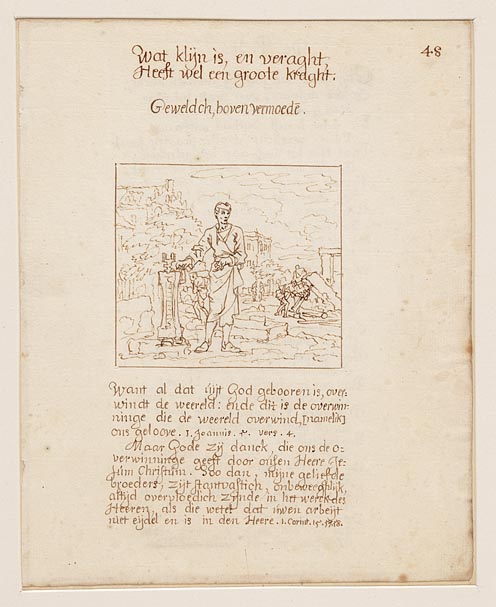 48
Wat klijn is, en veraght,
Heeft wel een groote kraght.
Geweldch, boven vermoedē.
Want al dat uijt God gebooren is, over-
windt de weereld: ende dit is de overwin-
ninge die de weereld overwind, [namelik]
ons geloove. 1. Joannis. 5. vers. 4.
Maar Gode zij danck, die ons de o-
verwinninge geeft door onsen Heere Je-
sum Christum. Soo dan, mijne geliefde
broeders, zijt stantvastich, onbeweeghlijk,
altijd overvloedich zijnde in het werck des
Heeren, als die wetet dat uwen arbeijt
niet eijdel en is in den Heere. 1. Corint. 15.